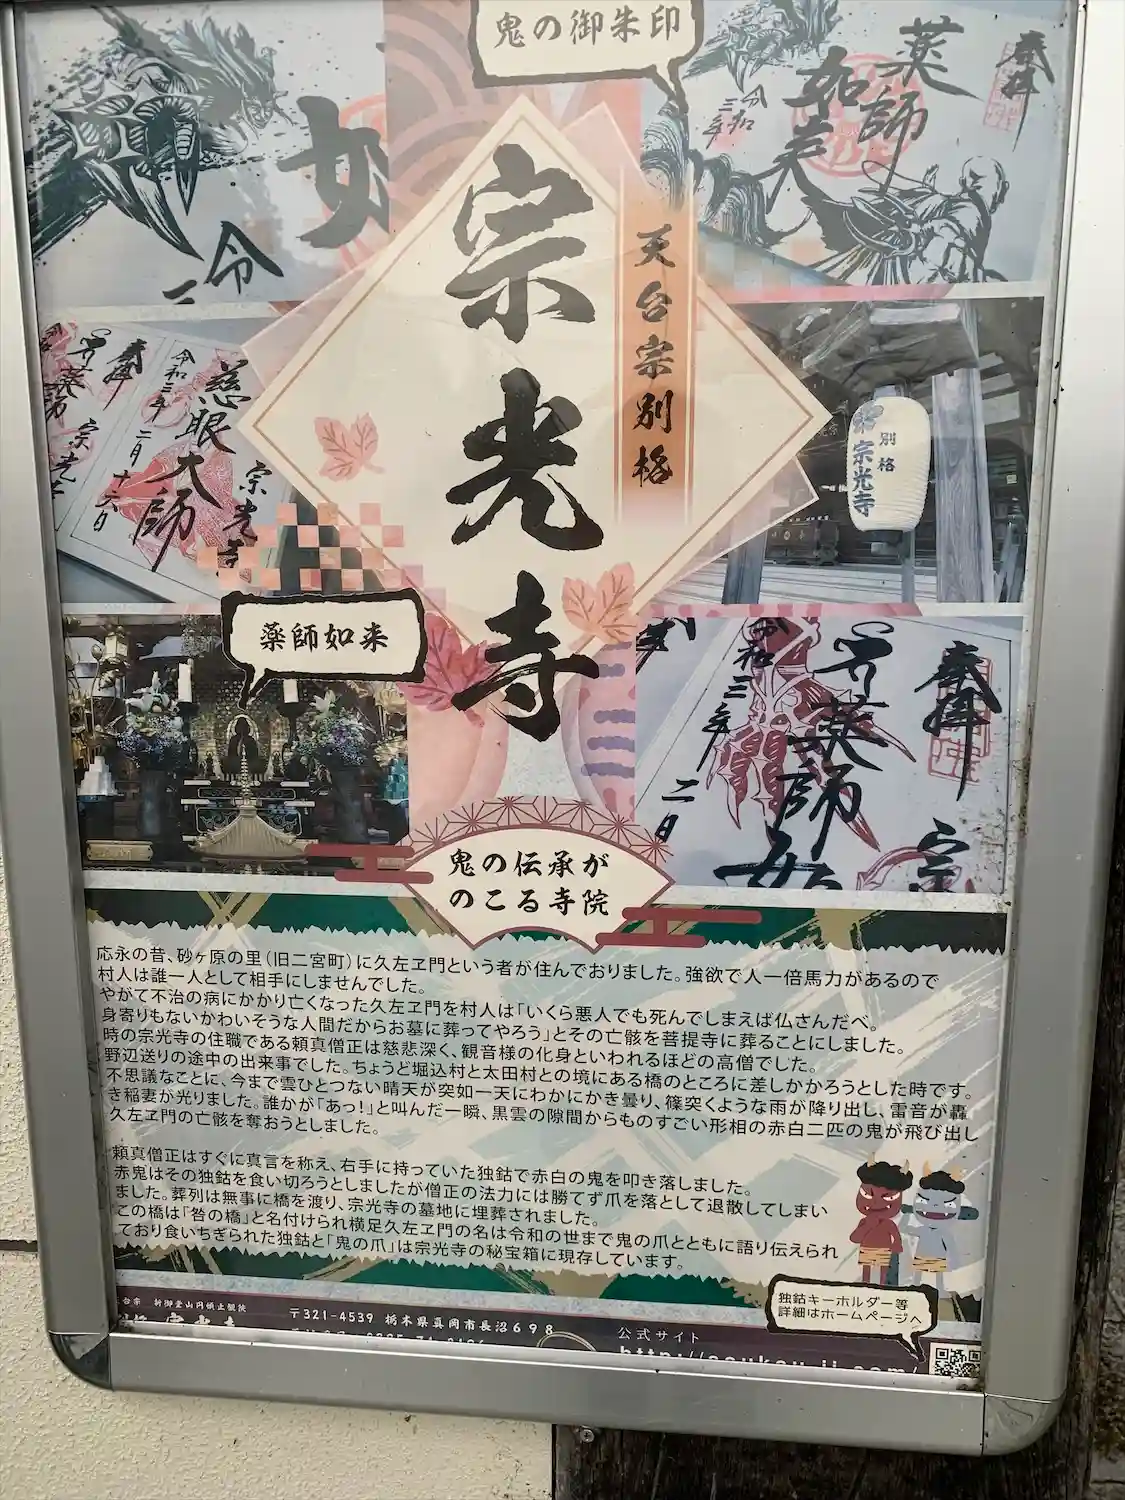 鬼の御朱印
奉拝
薬師
如来
令和
三年
如
令
三
天台宗別格
宗光寺
別格
宗光寺
奉拝
令和三年
二月十六日
慈眼
大師
宗光寺
薬師如来
奉拝
薬師如
令和三年
二日
宗
鬼の伝承が
のこる寺院
応永の昔、砂ヶ原の里(旧二宮町)に久左ヱ門という者が住んでおりました。強欲で人一倍馬力があるので
村人は誰一人として相手にしませんでした。
やがて不治の病にかかり亡くなった久左ヱ門を村人は「いくら悪人でも死んでしまえば仏さんだべ。
身寄りもないかわいそうな人間だからお墓に葬ってやろう」とその亡骸を菩提寺に葬ることにしました。
時の宗光寺の住職である頼真僧正は慈悲深く、観音様の化身といわれるほどの高僧でした。
野辺送りの途中の出来事でした。ちょうど堀込村と太田村との境にある橋のところに差しかかろうとした時です。
不思議なことに、今まで雲ひとつない晴天が突如一天にわかにかき曇り、篠突くような雨が降り出し、雷音が轟
き稲妻が光りました。誰かが「あっ!」と叫んだ一瞬、黒雲の隙間からものすごい形相の赤白二匹の鬼が飛び出し
久左ヱ門の亡骸を奪おうとしました。
頼真僧正はすぐに真言を称え、右手に持っていた独鈷で赤白の鬼を叩き落しました。
赤鬼はその独鈷を食い切ろうとしましたが僧正の法力には勝てず爪を落として退散してしまい
ました。葬列は無事に橋を渡り、宗光寺の墓地に埋葬されました。
この橋は「咎の橋」と名付けられ横足久左ヱ門の名は令和の世まで鬼の爪とともに語り伝えられ
ており食いちぎられた独鈷と「鬼の爪」は宗光寺の秘宝箱に現存しています。
独鈷キーホルダー等
詳細はホームページへ
〒321-4539 栃木県真岡市長沼698
公式サイト